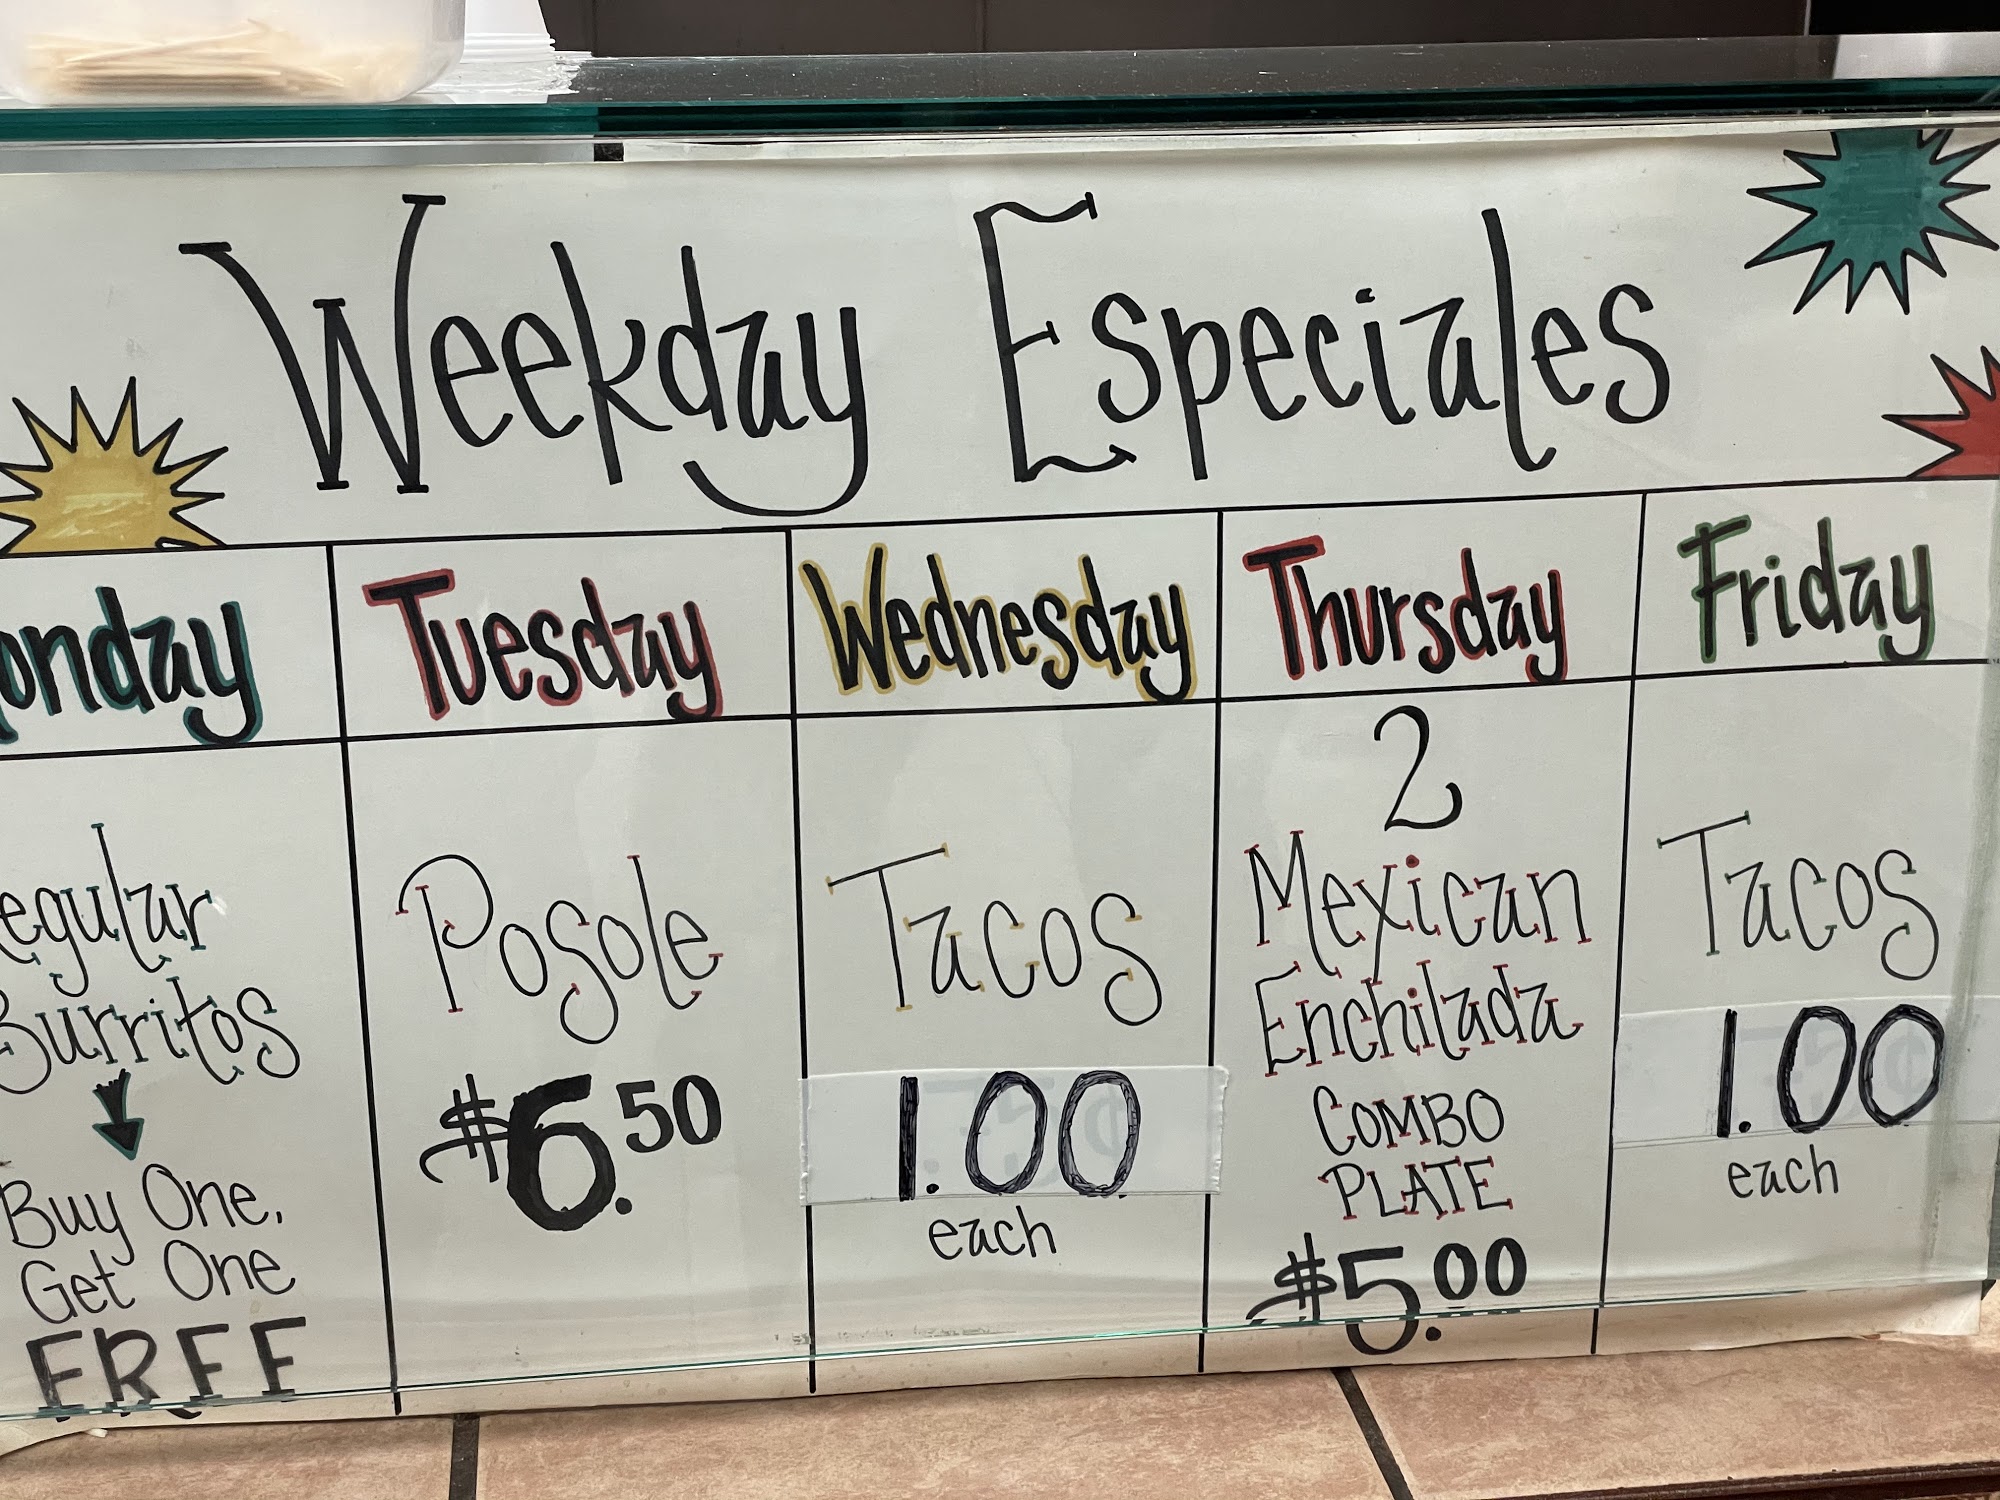 Weekday Especiales
onday
egular
Burritos
Buy One,
Get One
FREE
Tuesday
Posole
$6.50
Wednesday
Tacos
1.00
each
Thursday
2
Mexican
Enchilada
COMBO
PLATE
$5.00
Friday
Tacos
1.00
each